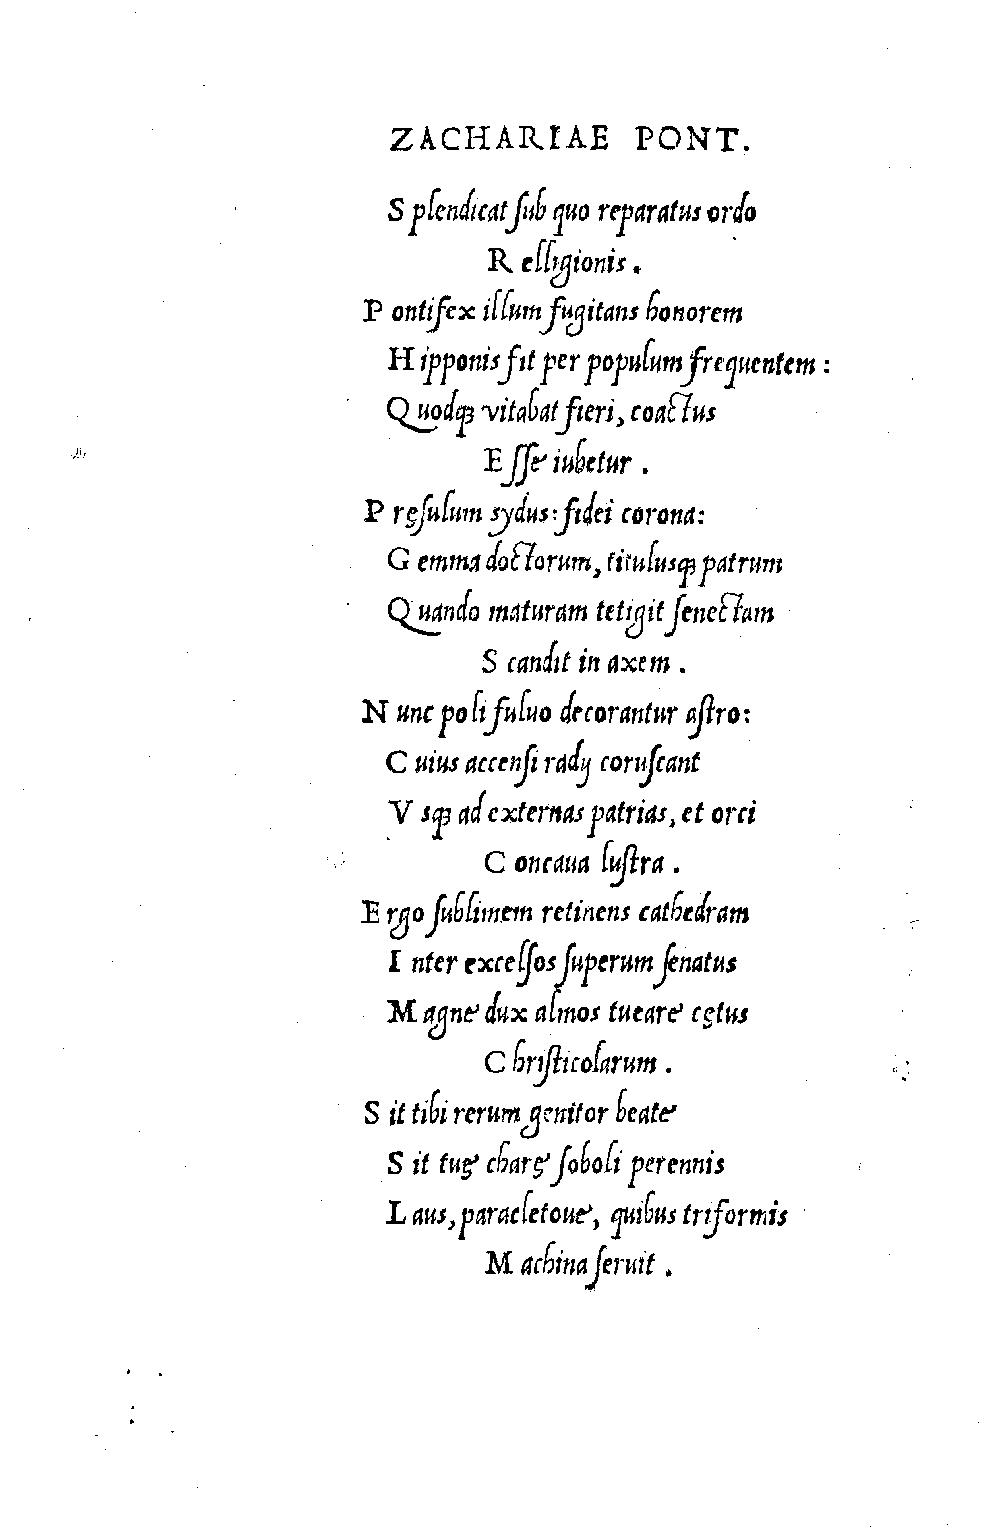 ZACHARIAE PONT.
Splendicat ſub quo reparatus ordo
Relligionis.
Pontifex illum fugitans honorem
Hipponis fit per populum frequentem:
Quodq; vitabat fieri, coactus
Eſſe iubetur.
Pręſulum sydus: fidei corona:
Gemma doctorum, titulusq; patrum
Quando maturam tetigit ſenectam
Scandit in axem.
Nunc poli fuluo decorantur aſtro:
Cuius accenſi radij coruſcant
Vsq; ad externas patrias, et orci
Concaua luſtra.
Ergo ſublimem retinens cathedram
Inter excelſos ſuperum ſenatus
Magne dux almos tueare cętus
Chriſticolarum.
Sit tibi rerum genitor beate
Sit tuę charę ſoboli perennis
Laus, paracletoue, quibus triformis
Machina ſeruit.